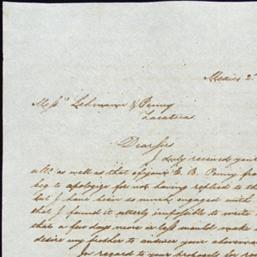 Mexico 2
Messrs Lehmann & Penny
Zacatecas
Dear Sirs
I duly received your
as well as that of your B. Penny from
beg to apologize for not having replied to the
but I have been so much engaged with
that I found it utterly impossible to write
than a few days more or less must make
desire my brother to answer your above
In regard to your proposals for